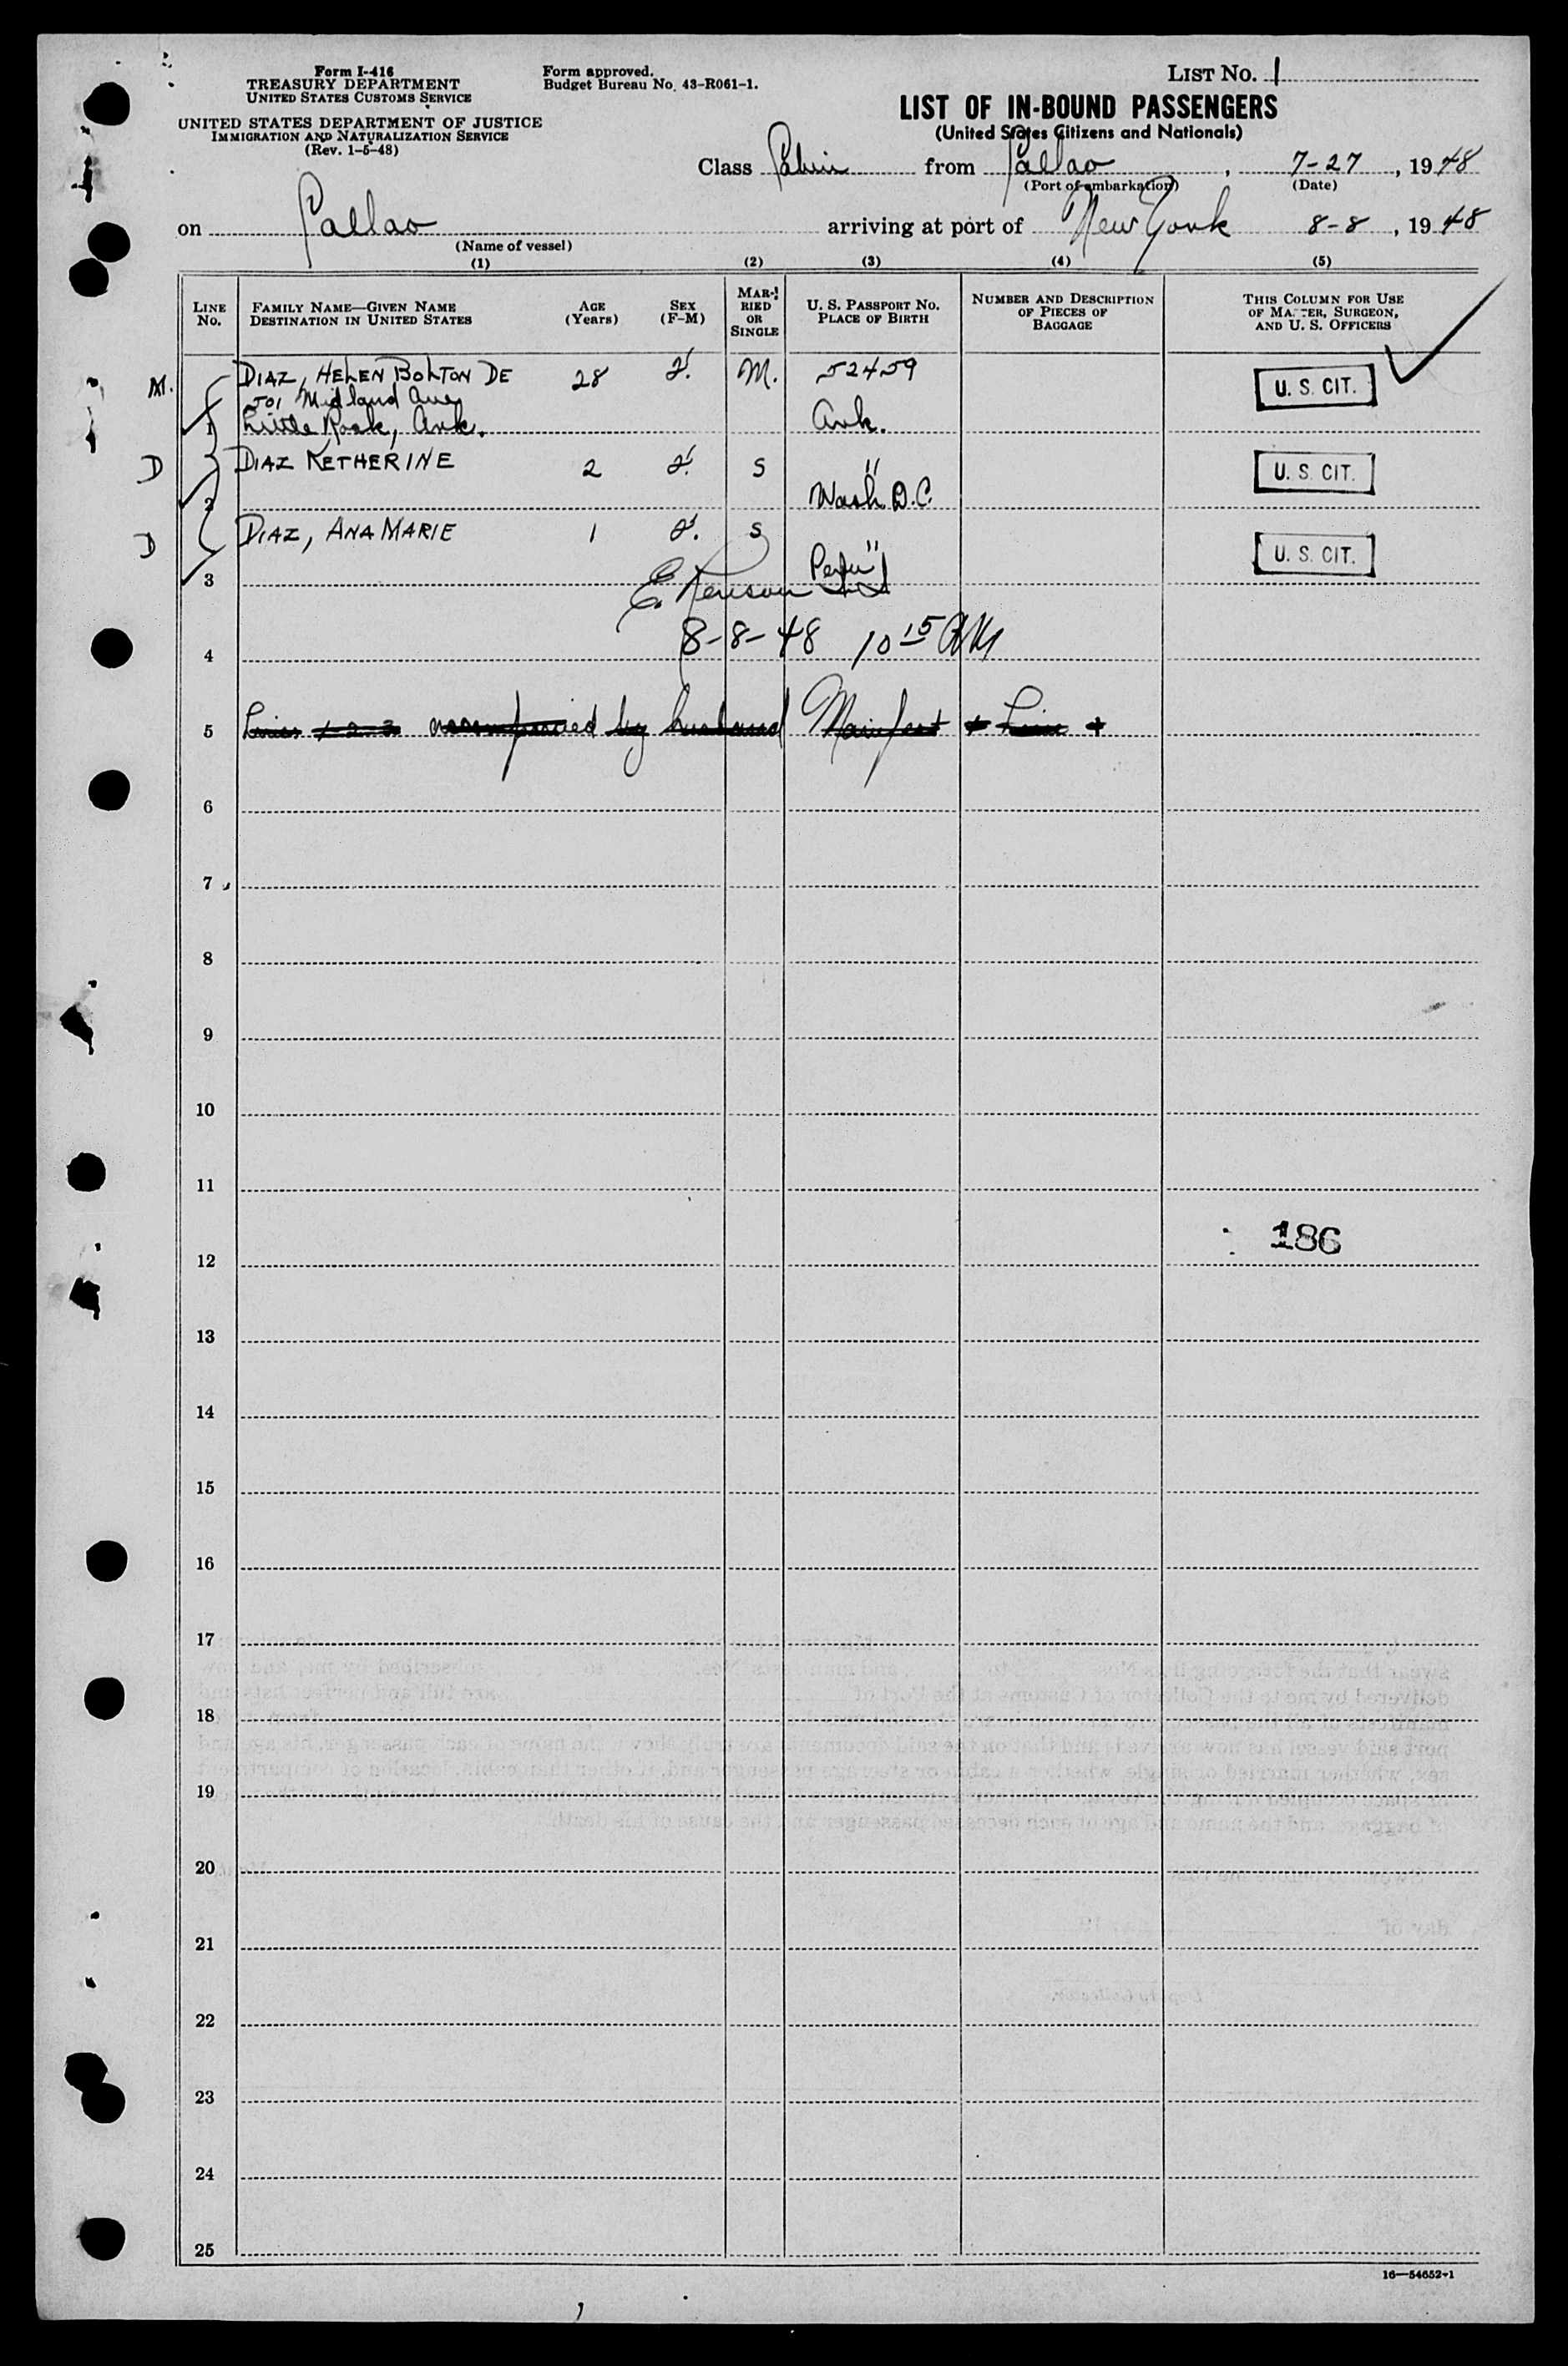 Form I-416
TREASURY DEPARTMENT
UNITED STATES CUSTOMS SERVICE
UNITED STATES DEPARTMENT OF JUSTICE
IMMIGRATION AND NATURALIZATION SERVICE
(Rev. 1-5-48)
Form approved.
Budget Bureau No. 43-R061-1.
LIST No. 1
LIST OF IN-BOUND PASSENGERS
(United States Citizens and Nationals)
Class Cabin from Callao, 7-27, 1948
(Port of embarkation) (Date)
on Callao arriving at port of New York 8-8, 1948
(Name of vessel)
(1) (2) (3) (4) (5)
LINE No. FAMILY NAME—GIVEN NAME DESTINATION IN UNITED STATES AGE (Years) SEX (F-M) MARRIED OR SINGLE U. S. PASSPORT NO. PLACE OF BIRTH NUMBER AND DESCRIPTION OF PIECES OF BAGGAGE THIS COLUMN FOR USE OF MASTER, SURGEON, AND U. S. OFFICERS
M. DIAZ, HELEN BOLTON DE 28 F. M. 52459 U. S. CIT.
501 Midland Ave
1 Little Rock, Ark. Ark.
D DIAZ KETHERINE 2 F. S " U. S. CIT.
2 Wash D.C.
D DIAZ, ANA MARIE 1 F. S " U. S. CIT.
3 Peru
8-8-48 10 15 AM
4
5 Lines 1-2-3 accompanied by husband Manifest Line
6
7
8
9
10
11
186
12
13
14
15
16
17
18
19
20
21
22
23
24
25
16—54652-1